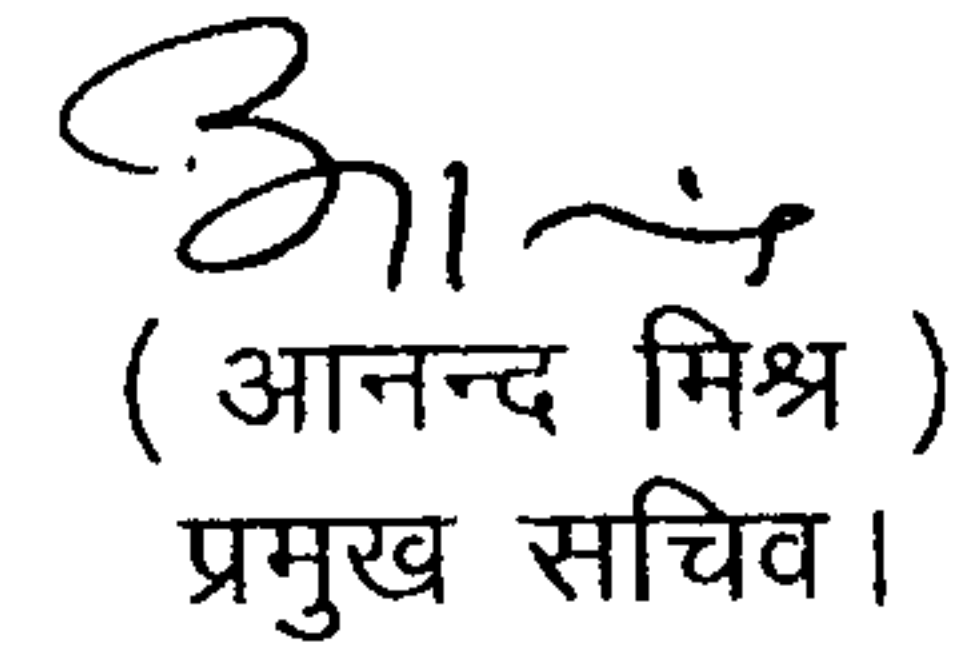 ( आनन्द मिश्र )
प्रमुख सचिव।